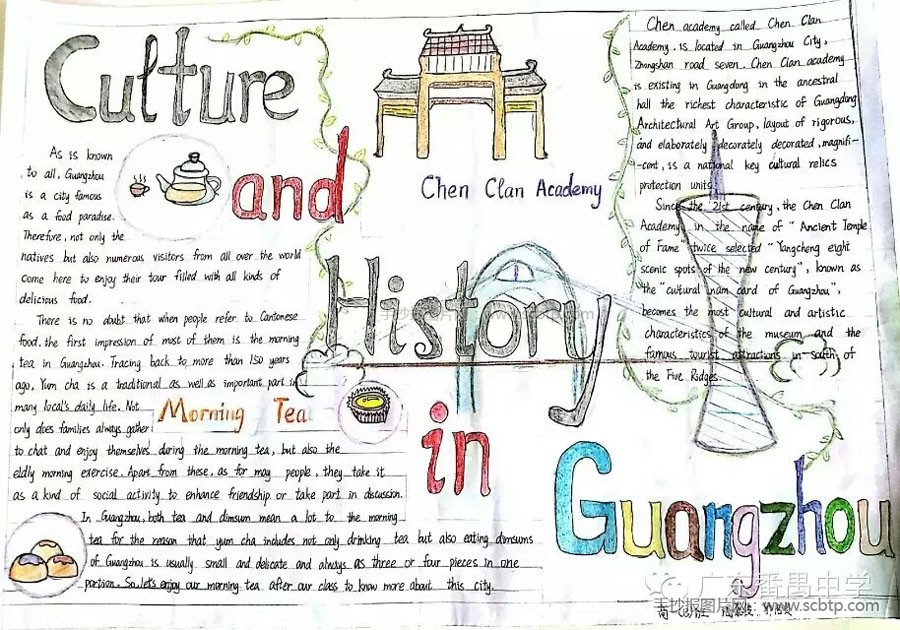 Culture
and
History
in
Guangzhou
As is known
to all, Guangzhou
is a city famous
as a food paradise.
Therefore, not only the
natives but also numerous visitors from all over the world
come here to enjoy their tour filled with all kinds of
delicious food.
There is no doubt that when people refer to Cantonese
food, the first impression of most of them is the morning
tea in Guangzhou. Tracing back to more than 150 years
ago, Yum cha is a traditional as well as important part in
many local's daily life. Not
only does families always gather
to chat and enjoy themselves during the morning tea, but also the
eldly morning exercise. Apart from these, as for may people, they take it
as a kind of social activity to enhance friendship or take part in discussion.
In Guangzhou, both tea and dimsum mean a lot to the morning
tea for the reason that yum cha includes not only drinking tea but also eating dimsums
of Guangzhou is usually small and delicate and always as three or four pieces in one
portion. So let's enjoy our morning tea after our class to know more about this city.
Morning Tea
Chen Clan Academy
Chen academy called Chen Clan
Academy, is located in Guangzhou City,
Zhongshan road seven. Chen Clan academy
is existing in Guangdong in the ancestral
hall the richest characteristic of Guangdong
Architectural Art Group, layout of rigorous,
and elaborately decorately decorated, magnifi-
-cent, is a national key cultural relics
protection units.
Since the 21st century, the Chen Clan
Academy in the name of "Ancient Temple
of Fame" twice selected "Yangcheng eight
scenic spots of the new century", known as
the "cultural nam card of Guangzhou",
becomes the most cultural and artistic
characteristics of the museum and the
famous tourist attractions in south of
the Five Ridges.
广东番禺中学
手抄报图片 www.scbtp.com